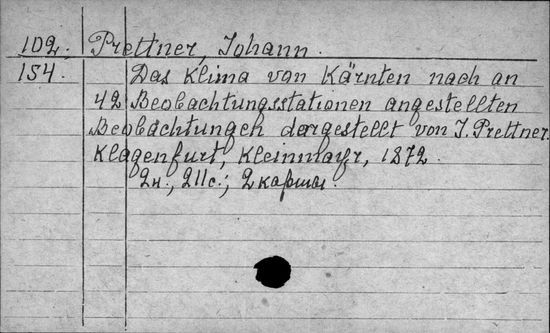 102. Prettner, Johann.
154. Das Klima von Kärnten nach an
42 Beobachtungsstationen angestellten
Beobachtungen dargestellt von J. Prettner.
Klagenfurt, Kleinmayr, 1872.
2н., 211с.; 2 карты.